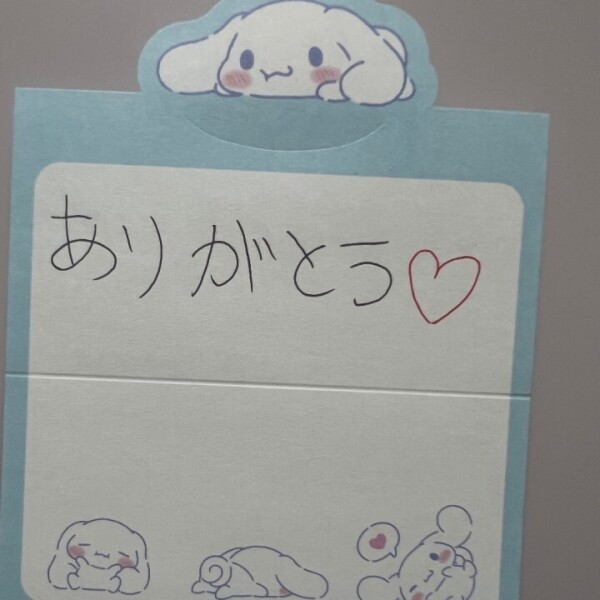 ありがとう♡